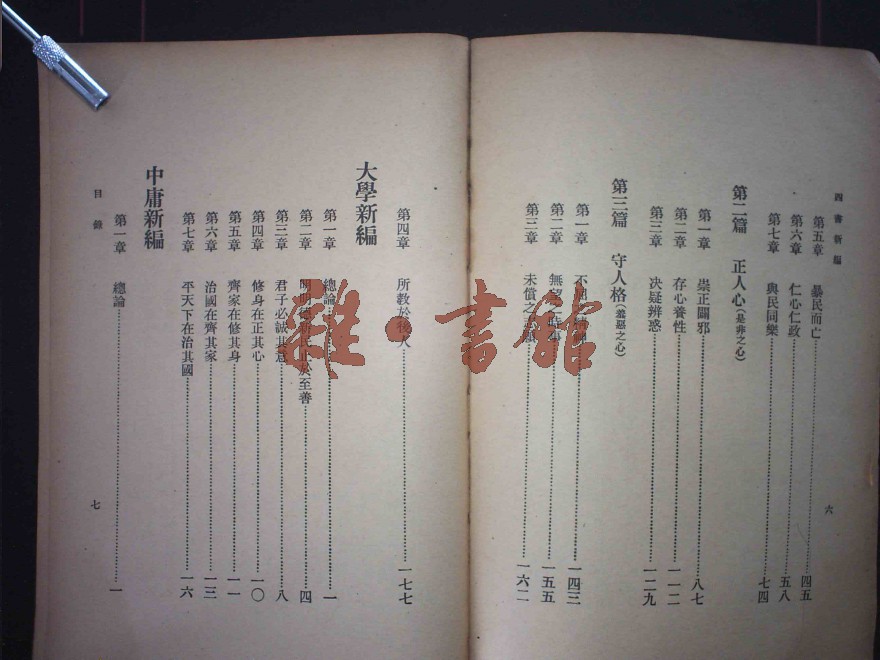 四書新編
第五章 暴民而亡…………四五
第六章 仁心仁政…………五八
第七章 與民同樂…………七四
第二篇 正人心(是非之心)
第一章 崇正闢邪…………八七
第二章 存心養性…………一一二
第三章 決疑辨惑…………一二九
第三篇 守人格(羞惡之心)
第一章 不…………一四三
第二章 無…………一五五
第三章 未償之…………一六二
六
第四章 所教於後人…………一七七
大學新編
第一章 總論…………一
第二章 明明德新民止於至善…………四
第三章 君子必誠其意…………八
第四章 修身在正其心…………一〇
第五章 齊家在修其身…………一一
第六章 治國在齊其家…………一三
第七章 平天下在治其國…………一六
中庸新編
第一章 總論…………一
目錄
七
·書館